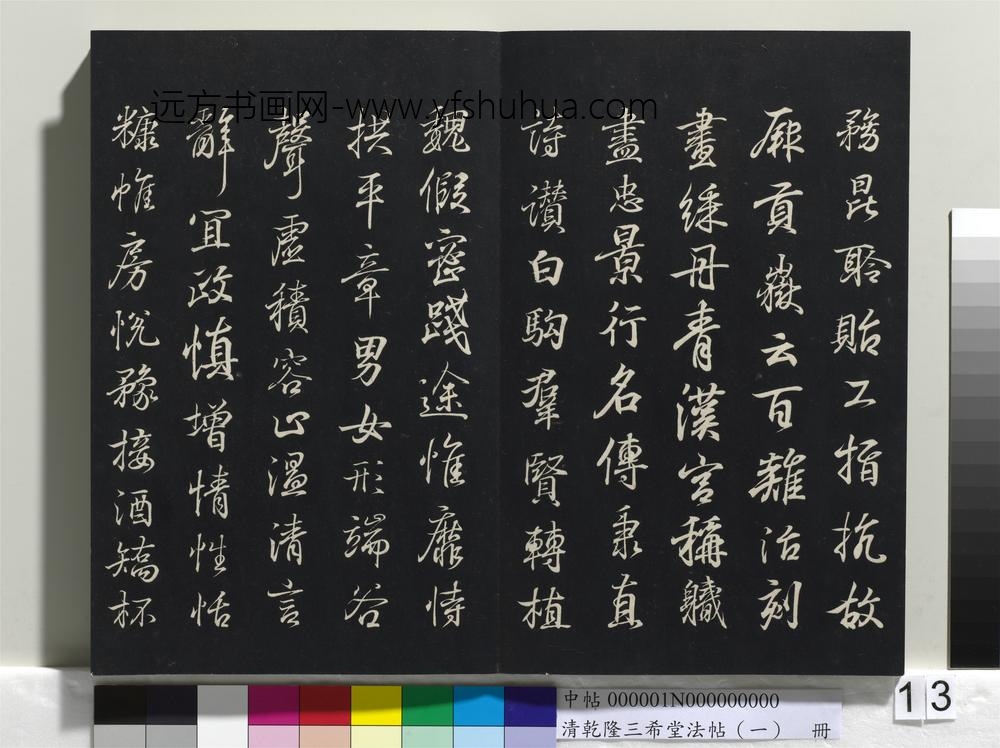 務昆聆貽工指抗故
厥貢嶽云百治刻
畫綵丹青漢宮稱職
盡忠景行名傳秉直
詩讚白駒羣賢轉植
魏假密踐途惟靡恃
拱平章男女形端谷
聲虛積容止溫清言
辭宜政慎增情性恬
糠帷房悅豫接酒矯杯
远方书画网-www.yfshuhua.com
中帖 000001N000000000
清乾隆三希堂法帖（一） 冊
13